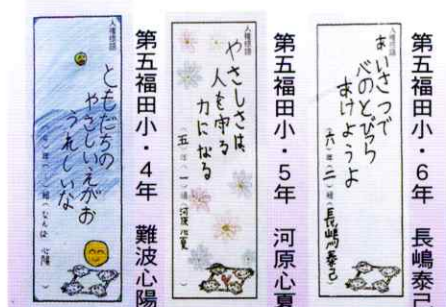 第五福田小・6年 長嶋泰己
人権標語
あいさつで
心のとびら
あけようよ
六年二組 長嶋泰己
第五福田小・5年 河原心夏
人権標語
やさしさは
人を守る
力になる
五年一組 河原心夏
第五福田小・4年 難波心陽
人権標語
ともだちの
やさしいえがお
うれしいな
年 組 なんば 心陽